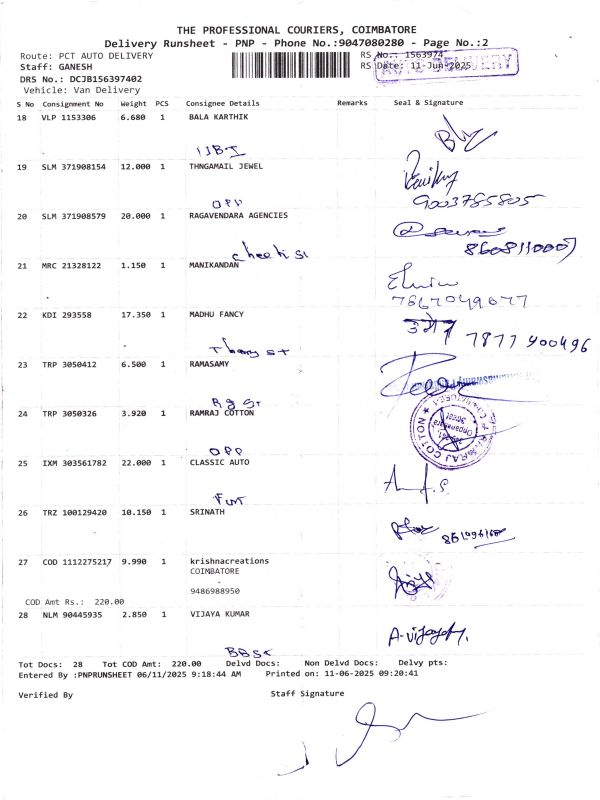 THE PROFESSIONAL COURIERS, COIMBATORE
Delivery Runsheet - PNP - Phone No.:9047080280 - Page No.:2
Route: PCT AUTO DELIVERY RS No.: 1563974
Staff: GANESH RS Date: 11-Jun-2025
DRS No.: DCJB156397402
Vehicle: Van Delivery
S No Consignment No Weight PCS Consignee Details Remarks Seal & Signature
18 VLP 1153306 6.680 1 BALA KARTHIK
19 SLM 371908154 12.000 1 THNGAMAIL JEWEL
9003785805
OPP
20 SLM 371908579 20.000 1 RAGAVENDARA AGENCIES
21 MRC 21328122 1.150 1 MANIKANDAN
22 KDI 293558 17.350 1 MADHU FANCY
7877900496
23 TRP 3050412 6.500 1 RAMASAMY
24 TRP 3050326 3.920 1 RAMRAJ COTTON
OPP
25 IXM 303561782 22.000 1 CLASSIC AUTO
26 TRZ 100129420 10.150 1 SRINATH
27 COD 1112275217 9.990 1 krishnacreations
COIMBATORE
9486988950
COD Amt Rs.: 220.00
28 NLM 90445935 2.850 1 VIJAYA KUMAR
A-vijayak
BBSt
Tot Docs: 28 Tot COD Amt: 220.00 Delvd Docs: Non Delvd Docs: Delvy pts:
Entered By :PNPRUNSHEET 06/11/2025 9:18:44 AM Printed on: 11-06-2025 09:20:41
Verified By Staff Signature